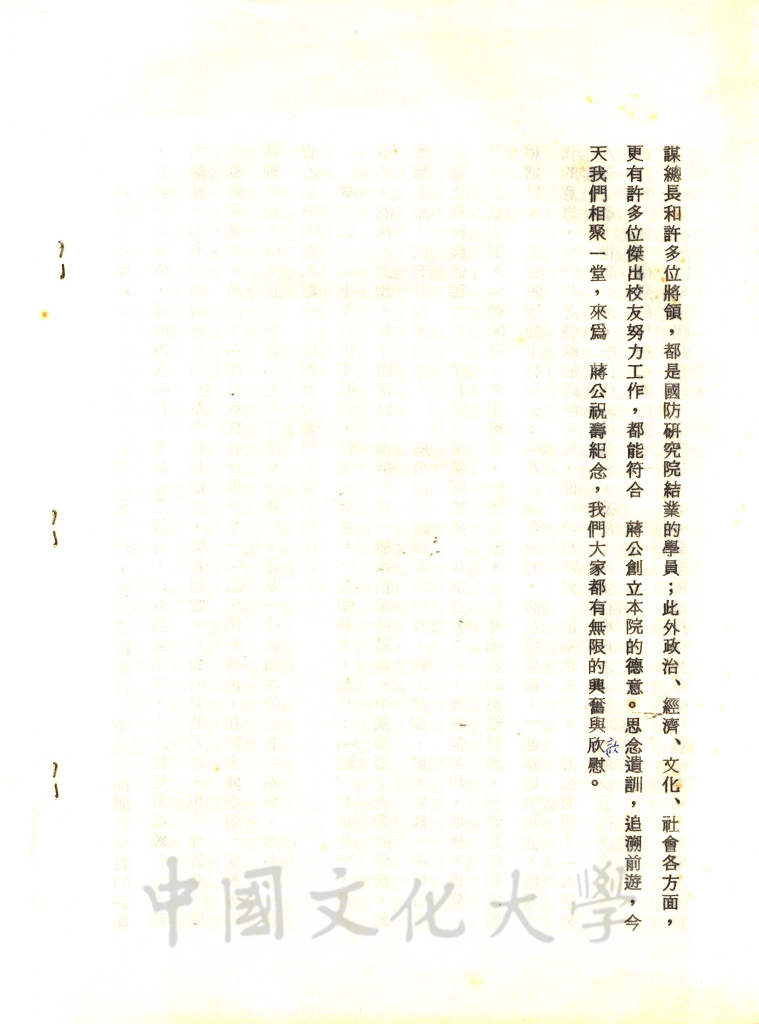 謀總長和許多位將領，都是國防研究院結業的學員；此外政治、經濟、文化、社會各方面，
更有許多位傑出校友努力工作，都能符合　蔣公創立本院的德意。思念遺訓，追溯前遊，今
天我們相聚一堂，來爲　蔣公祝壽紀念，我們大家都有無限的興奮與欣慰。
中國文化大學